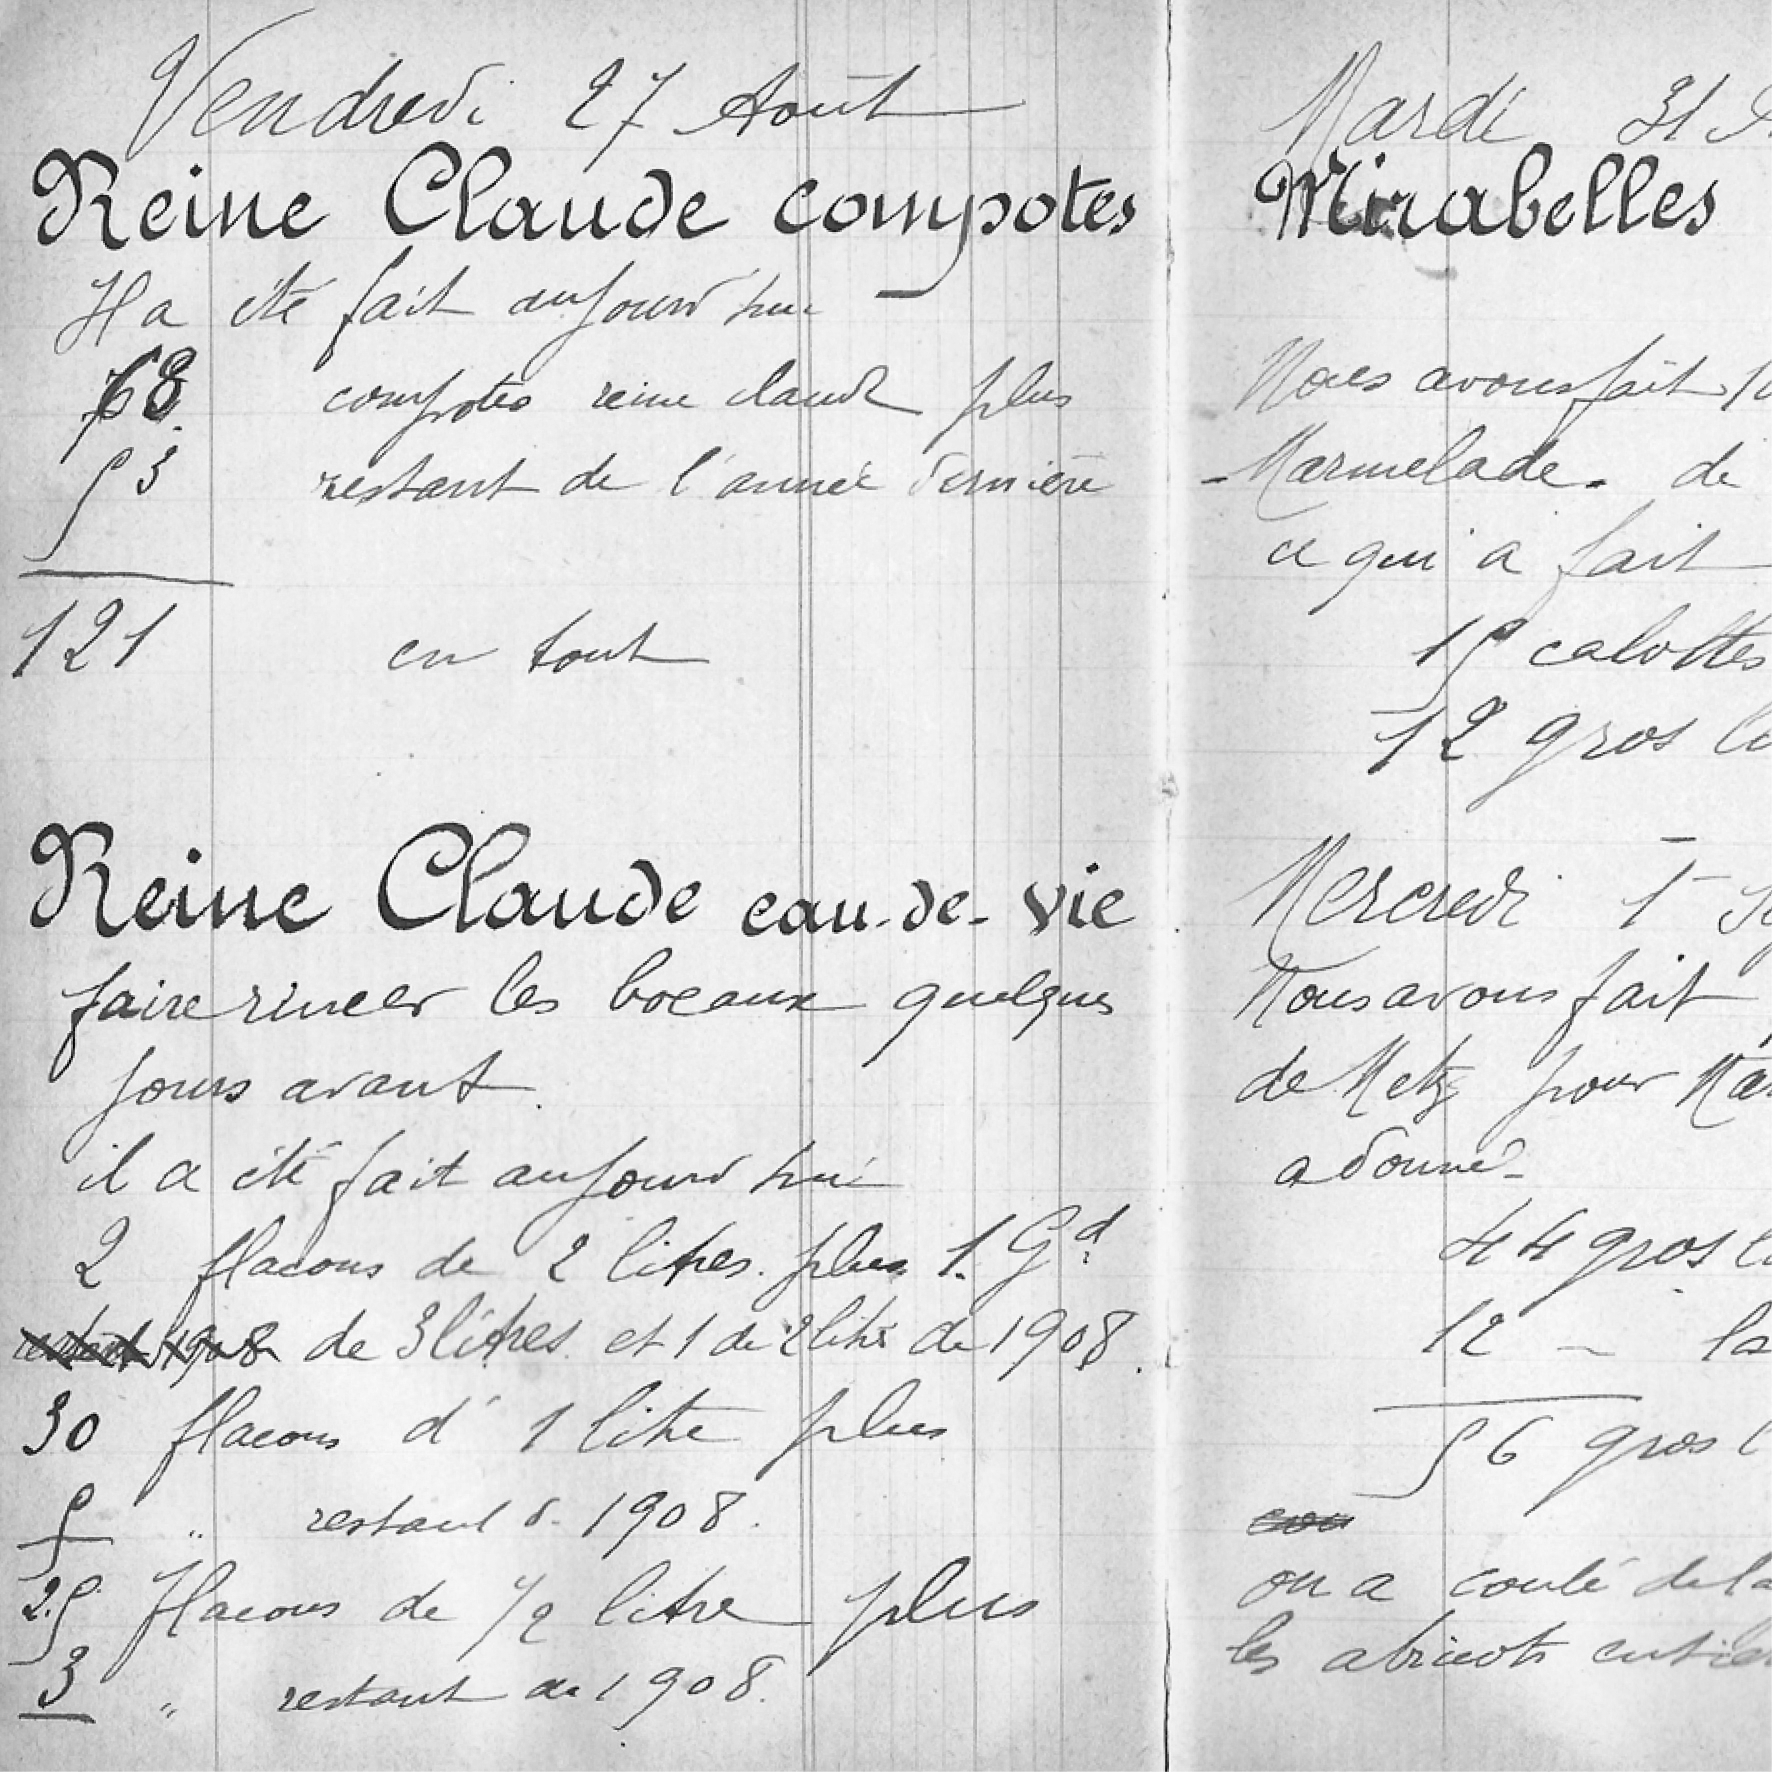 Vendredi 27 Août
Reine Claude compotes
Il a été fait aujourd'hui
68 compotes reine claude plus
53 restant de l'année dernière
121 en tout
Reine Claude eau-de-vie
faire rincer les bocaux quelques
jours avant.
il a été fait aujourd'hui
2 flacons de 2 litres. plus 1. Gd
restant 1908 de 3 litres et 1 de 2 litre de 1908.
30 flacons d' 1 litre plus
5 " restant d. 1908.
25 flacons de 1/2 litre plus
3 " restant de 1908.
Mardi 31
Mirabelles
Nous avons fait
Marmelade. de
ce qui a fait
15 calottes
12 gros
Mercredi 1
Nous avons fait
de Metz pour
a donné
44 gros
12 -
56 gros
on a coulé
les abricots